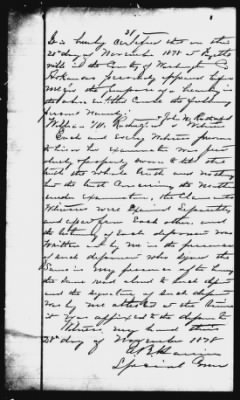 It is hereby certified that on this
20th day of November 1878 at Fayette
ville in the County of Washington &
Arkansas personally appeared before
me for the purpose of a hearing in
the above entitled cause the following
persons namely: John W. Rutherford
William M.
Each and every witness previous
to his or her examination was per
sonally properly sworn to tell the
truth the whole truth and nothing
but the truth concerning the matter
under examination, the claimants
witnesses were examined separately
and apart from each other, and
the testimony of each deponent was
written by me in the presence
of such deponent who signed the
same in my presence after having
the same read aloud to such deponent
and the signature of such deponent
was by me attested at the time
it was affixed to the deposition
Witness my hand this
20th day of November 1878
Harrison
Special Com